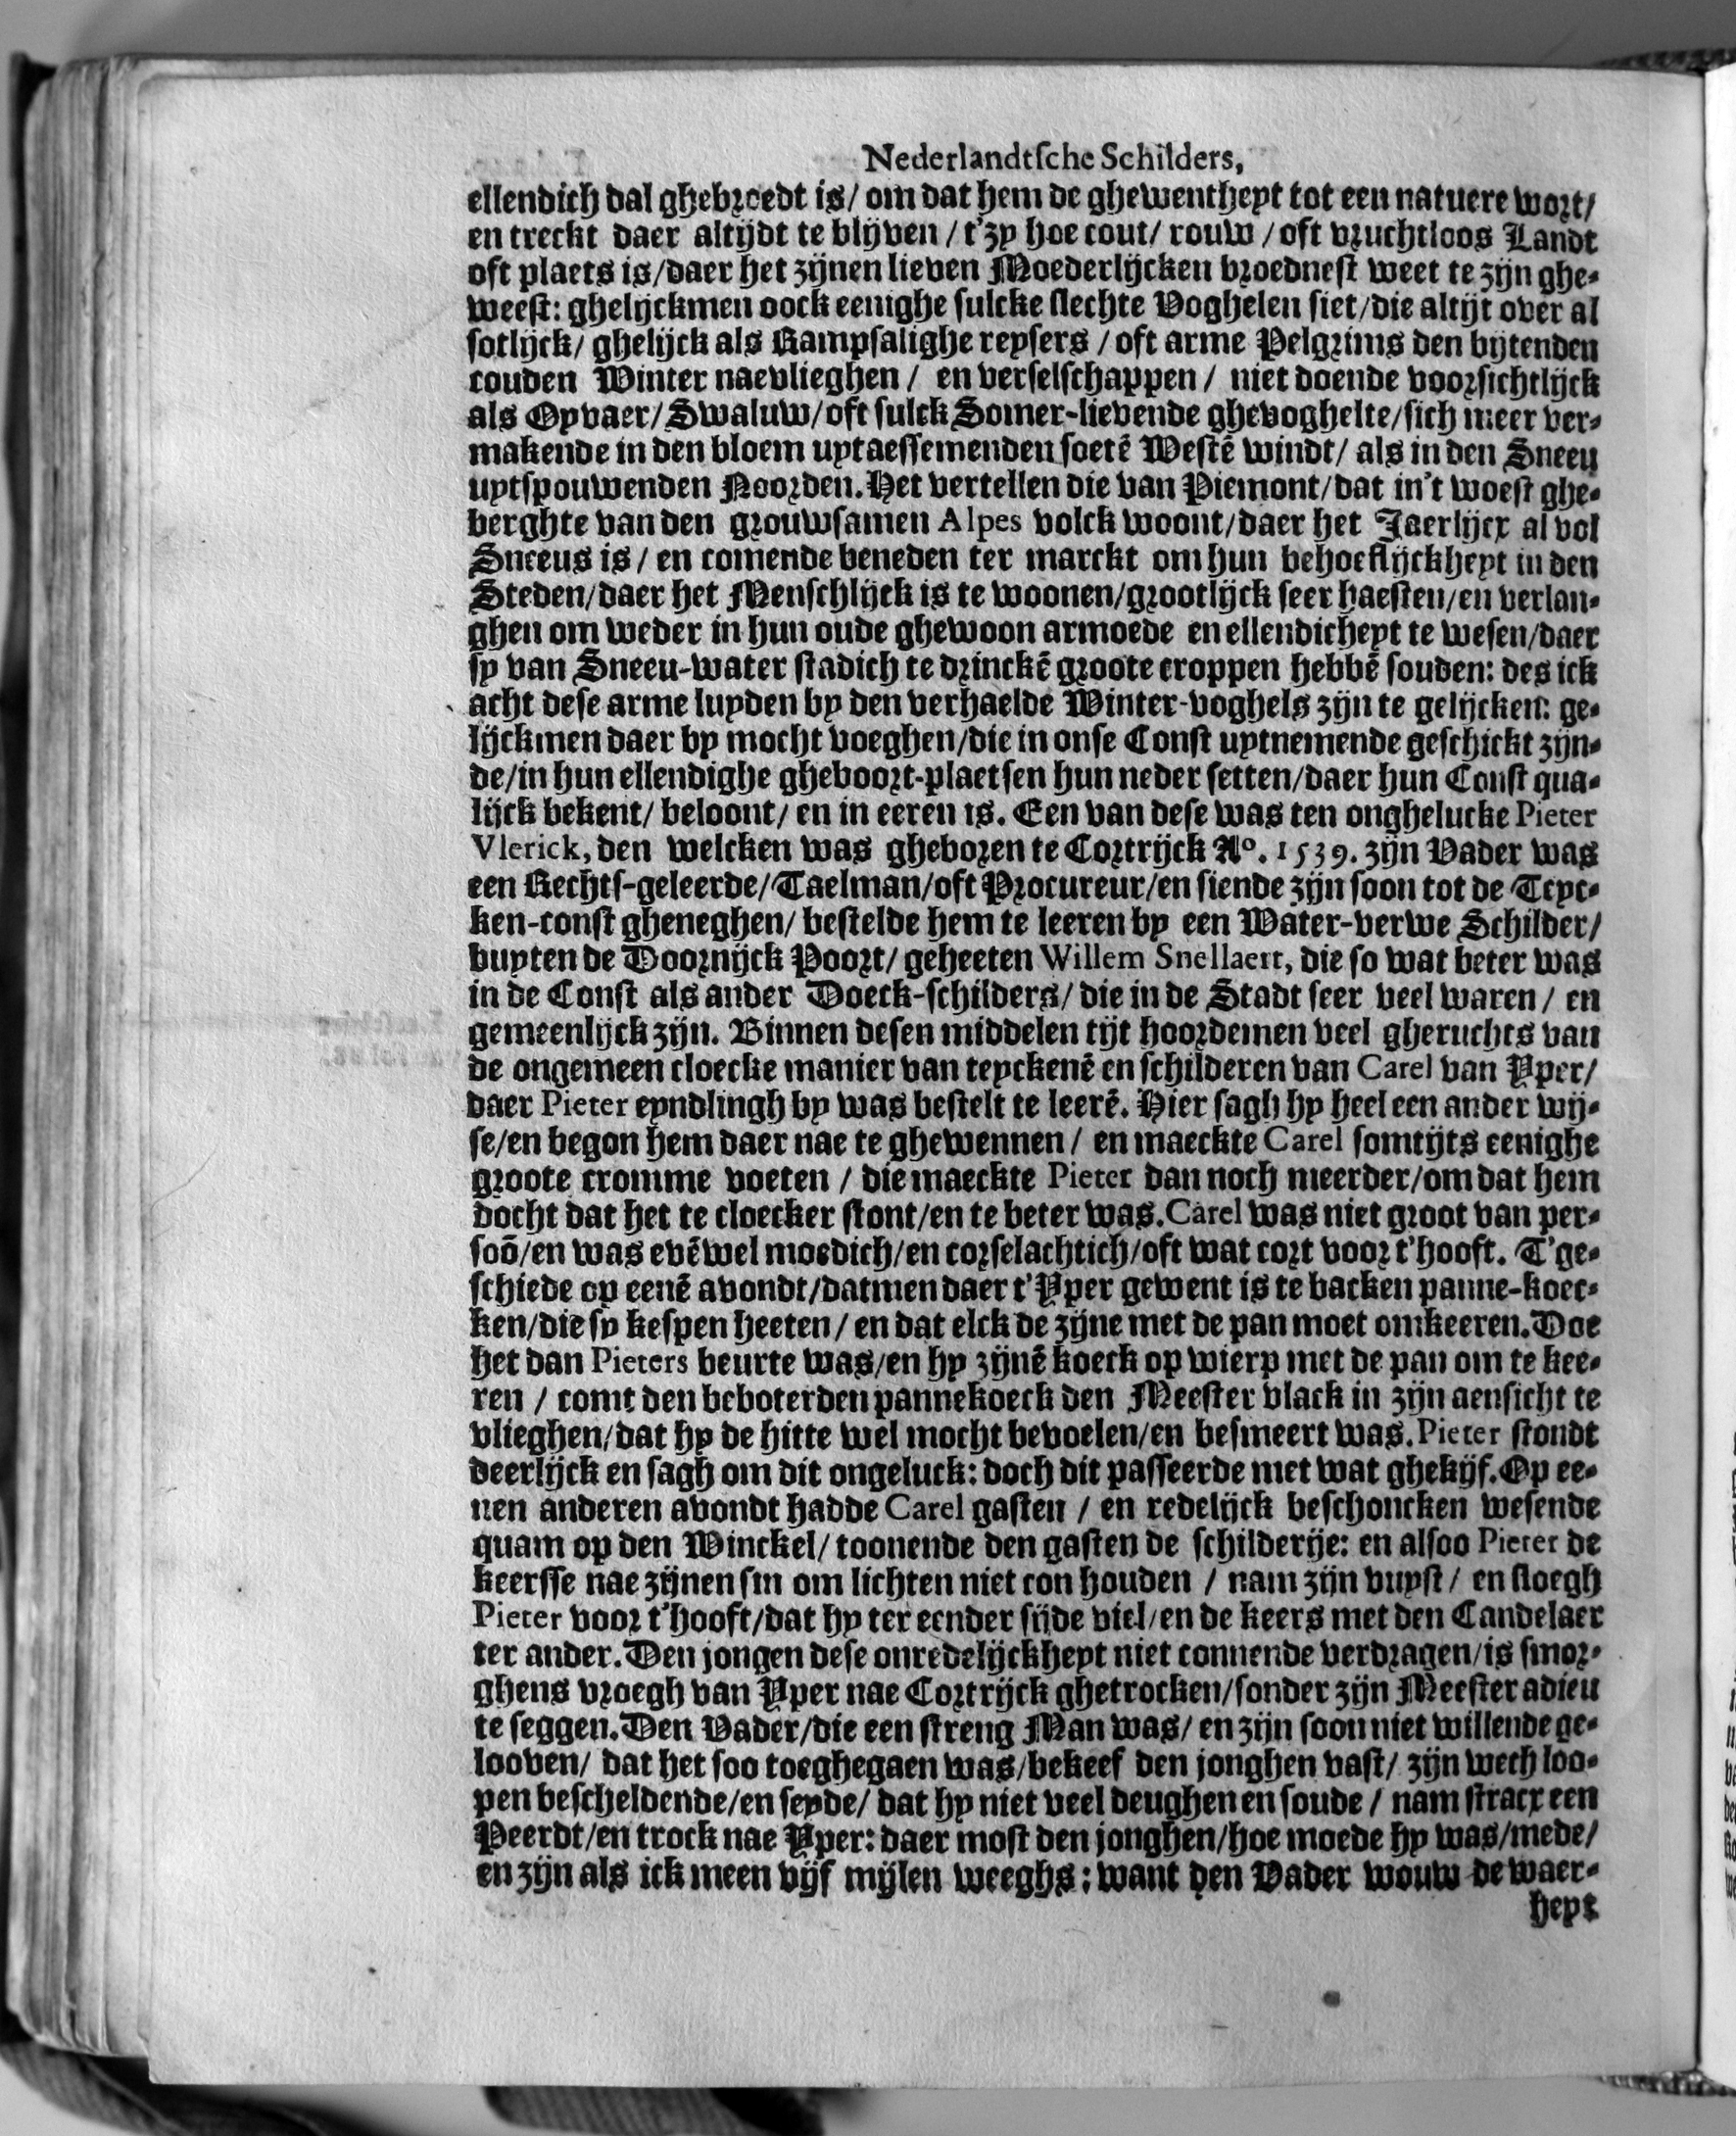 Nederlandtſche Schilders,
ellendich dal ghebroedt is/ om dat hem de ghewentheyt tot een natuere wort/
en treckt daer altijdt te blijven / t'zy hoe cout/ rouw / oft vruchtloos Landt
oft plaets is/daer het zijnen lieven Moederlijcken broednest weet te zijn ghe-
weest: ghelijckmen oock eenighe sulcke slechte Voghelen siet/die altijt over al
sotlijck/ ghelijck als Rampsalighe reysers / oft arme Pelgrims den bijtenden
couden Winter naevlieghen / en verselschappen / niet doende voorsichtlijck
als Oyvaer/Swaluw/oft sulck Somer-lievende ghevoghelte/sich meer ver-
makende in den bloem uytaessemenden soetē Westē windt/ als in den Sneeu
uytspouwenden Noorden. Het vertellen die van Piemont/dat in't woest ghe-
berghte van den grouwsamen Alpes volck woont/daer het Jaerlijcx al vol
Sneeus is / en comende beneden ter marckt om hun behoeflijckheyt in den
Steden/daer het Menschlijck is te woonen/grootlijck seer haesten/en verlan-
ghen om weder in hun oude ghewoon armoede en ellendicheyt te wesen/daer
sy van Sneeu-water stadich te drinckē groote croppen hebbē souden: des ick
acht dese arme luyden by den verhaelde Winter-voghels zijn te gelijcken: ge-
lijckmen daer by mocht voeghen/die in onse Const uytnemende geschickt zijn-
de/in hun ellendighe gheboort-plaetsen hun neder setten/daer hun Const qua-
lijck bekent/ beloont/ en in eeren is. Een van dese was ten onghelucke Pieter
Vlerick, den welcken was gheboren te Cortrijck Aº. 1539. zijn Vader was
een Rechts-geleerde/Taelman/oft Procureur/en siende zijn soon tot de Teyc-
ken-const gheneghen/ bestelde hem te leeren by een Water-verwe Schilder/
buyten de Doornijck Poort/ geheeten Willem Snellaert, die so wat beter was
in de Const als ander Doeck-schilders/ die in de Stadt seer veel waren / en
gemeenlijck zijn. Binnen desen middelen tijt hoordemen veel gheruchts van
de ongemeen cloecke manier van teyckenē en schilderen van Carel van Yper/
daer Pieter eyndlingh by was bestelt te leerē. Hier sagh hy heel een ander wij-
se/en begon hem daer nae te ghewennen / en maeckte Carel somtijts eenighe
groote cromme voeten / die maeckte Pieter dan noch meerder/om dat hem
docht dat het te cloecker stont/en te beter was. Carel was niet groot van per-
soō/en was evēwel moedich/en corselachtich/oft wat cort voor t'hooft. T'ge-
schiede op eenē avondt/datmen daer t'Yper gewent is te backen panne-koec-
ken/die sy kespen heeten / en dat elck de zijne met de pan moet omkeeren. Doe
het dan Pieters beurte was/en hy zijnē koeck op wierp met de pan om te kee-
ren / comt den beboterden pannekoeck den Meester vlack in zijn aensicht te
vlieghen/dat hy de hitte wel mocht bevoelen/en besmeert was. Pieter stondt
deerlijck en sagh om dit ongeluck: doch dit passeerde met wat ghekijf. Op ee-
nen anderen avondt hadde Carel gasten / en redelijck beschoncken wesende
quam op den Winckel/ toonende den gasten de schilderije: en alsoo Pieter de
keersse nae zijnen sin om lichten niet con houden / nam zijn vuyst / en sloegh
Pieter voor t'hooft/dat hy ter eender sijde viel/en de keers met den Candelaer
ter ander. Den jongen dese onredelijckheyt niet connende verdragen/is smor-
ghens vroegh van Yper nae Cortrijck ghetrocken/sonder zijn Meester adieu
te seggen. Den Vader/die een streng Man was/ en zijn soon niet willende ge-
looven/ dat het soo toeghegaen was/bekeef den jonghen vast/ zijn wech loo-
pen bescheldende/en seyde/ dat hy niet veel deughen en soude / nam stracx een
Peerdt/en trock nae Yper: daer most den jonghen/hoe moede hy was/mede/
en zijn als ick meen vijf mijlen weeghs: want den Vader wouw de waer-
heyt